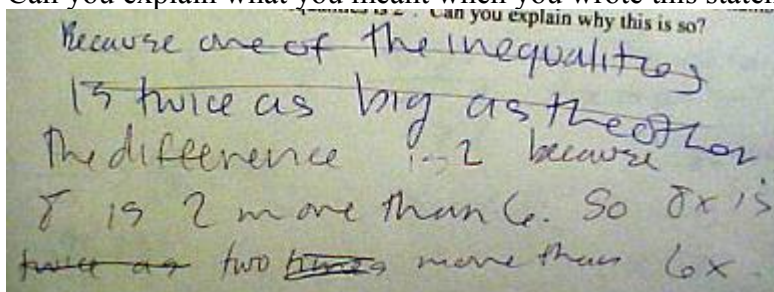 Can you explain what you meant when you wrote this
is 2". Can you explain why this is so?
Because one of the inequalities
is twice as big as the other
The difference is 2 because
8 is 2 more than 6. So 8x is
twice as two times more than 6x.